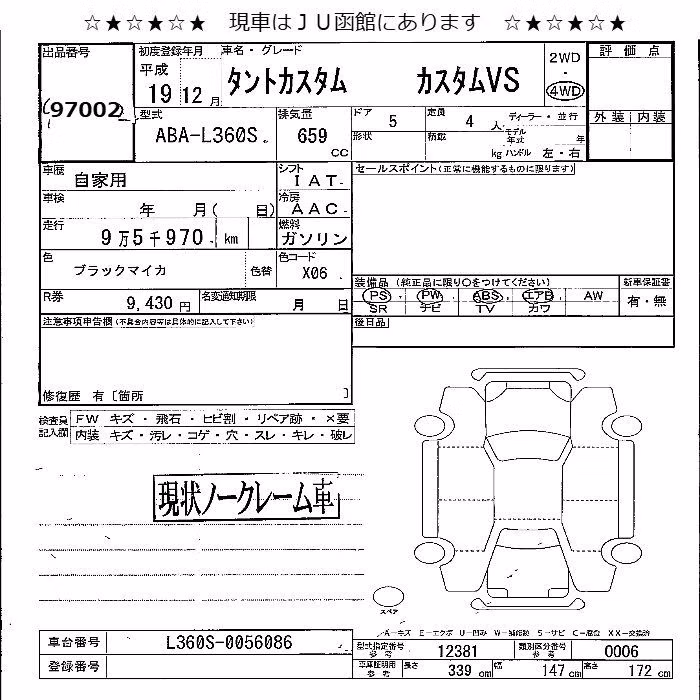 ☆★☆★☆★　現車はＪＵ函館にあります　☆★☆★☆★
出品番号
97002
初度登録年月
平成
19 12 月
車名・グレード
タントカスタム　カスタムVS
2WD
・
4WD
評価点
外装 内装
型式
ABA-L360S
排気量
659
CC
ドア 5
定員 4 人
ディーラー・並行
形状
積載 kg
モデル年式 年
ハンドル 左・右
車歴
自家用
シフト
I AT
セールスポイント(正常に機能するものに限ります)
車検
年 月( 日)
冷房
A AC
走行
9万5千970 km
燃料
ガソリン
色
ブラックマイカ
色替
色コード
X06
装備品 (純正品に限り○をつけてください)
新車保証書
PS ・ PW ・ ABS ・ エアB ・ AW
SR ナビ TV カワ
有・無
R券
9,430 円
名変通知期限
月 日
後日品
注意事項申告欄(不具合内容等は具体的に記入して下さい)
修復歴 有〔箇所 〕
検査員記入欄
FW キズ・飛石・ヒビ割・リペア跡・×要
内装 キズ・汚レ・コゲ・穴・スレ・キレ・破レ
現状ノークレーム車
スペア
A―キズ E―エクボ U―凹み W―補修跡 S―サビ C―腐食 XX―交換済
車台番号
L360S-0056086
登録番号
型式指定番号 参考
12381
類別区分番号 参考
0006
車庫証明用 参考
長さ 339 cm
幅 147 cm
高さ 172 cm